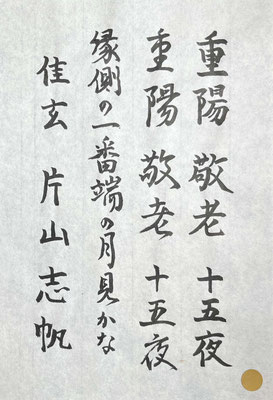 重陽 敬老 十五夜
重陽 敬老 十五夜
縁側の一番端の月見かな
佳玄 片山志帆